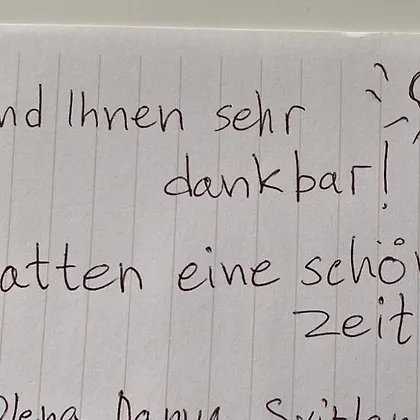 nd Ihnen sehr
dankbar!
atten eine schön
Zeit
Olena Danya Svitlan